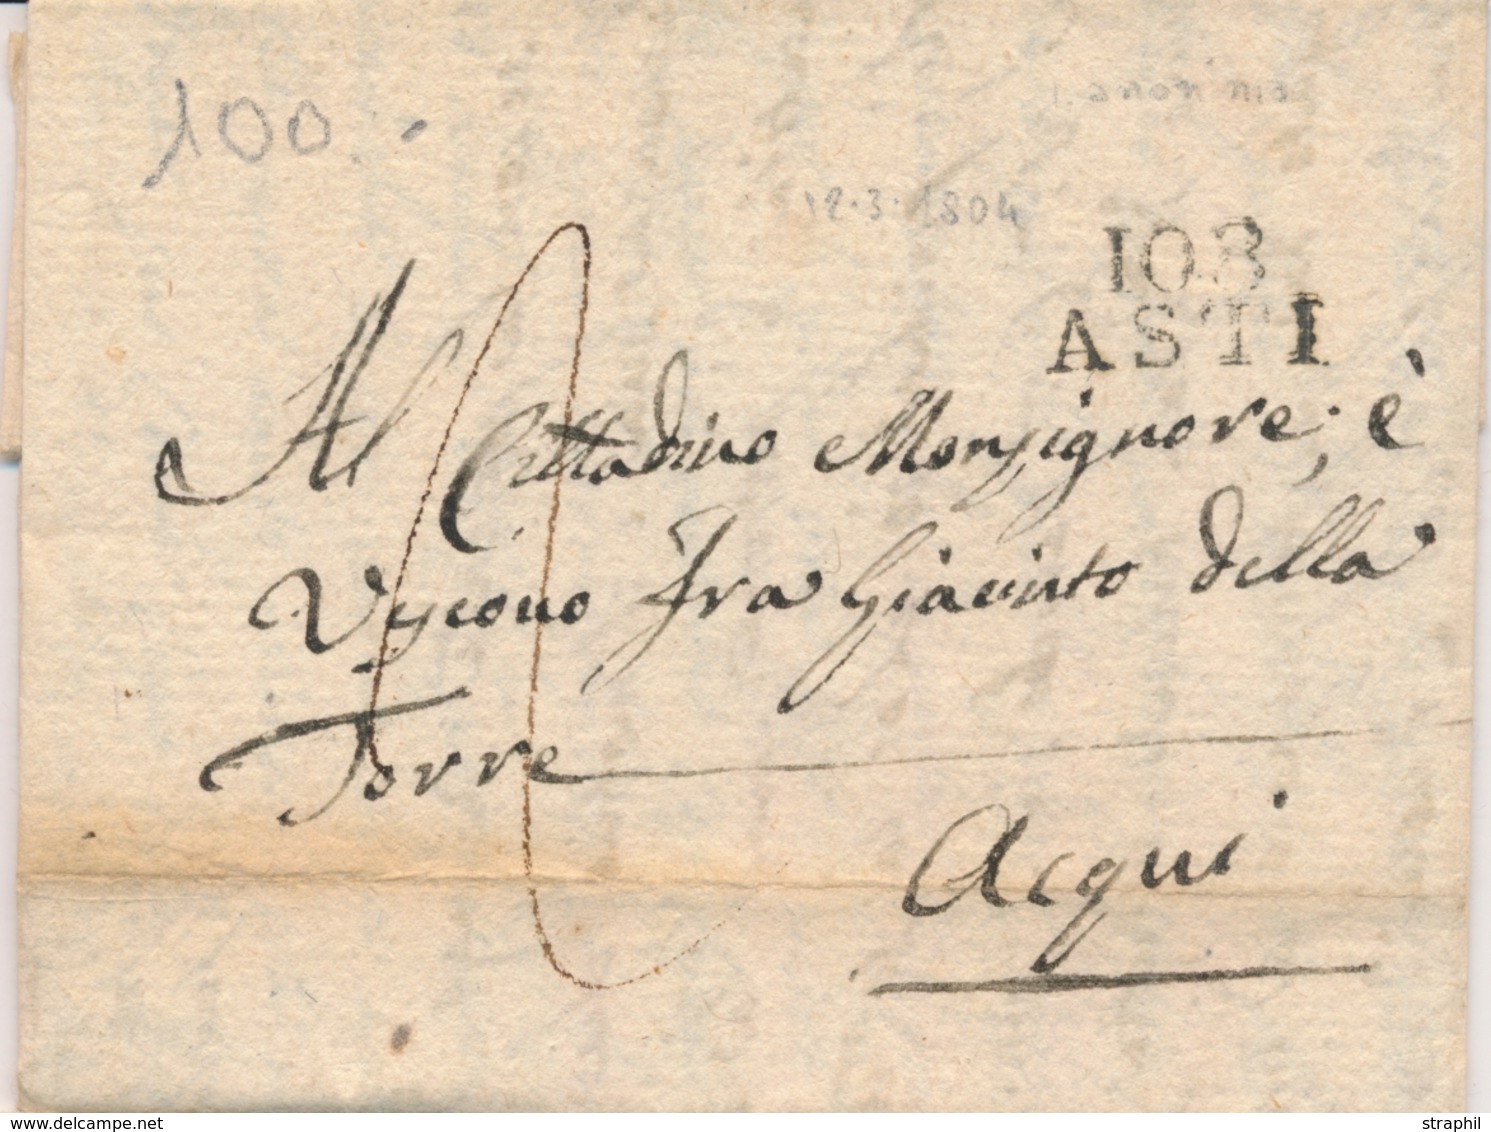 100.-
anonima
12.3.1804
108
ASTI
Al Cittadino Monsignore; è
Vescovo Fra Giacinto della
Torre
Acqui
© delcampe.net
straphil